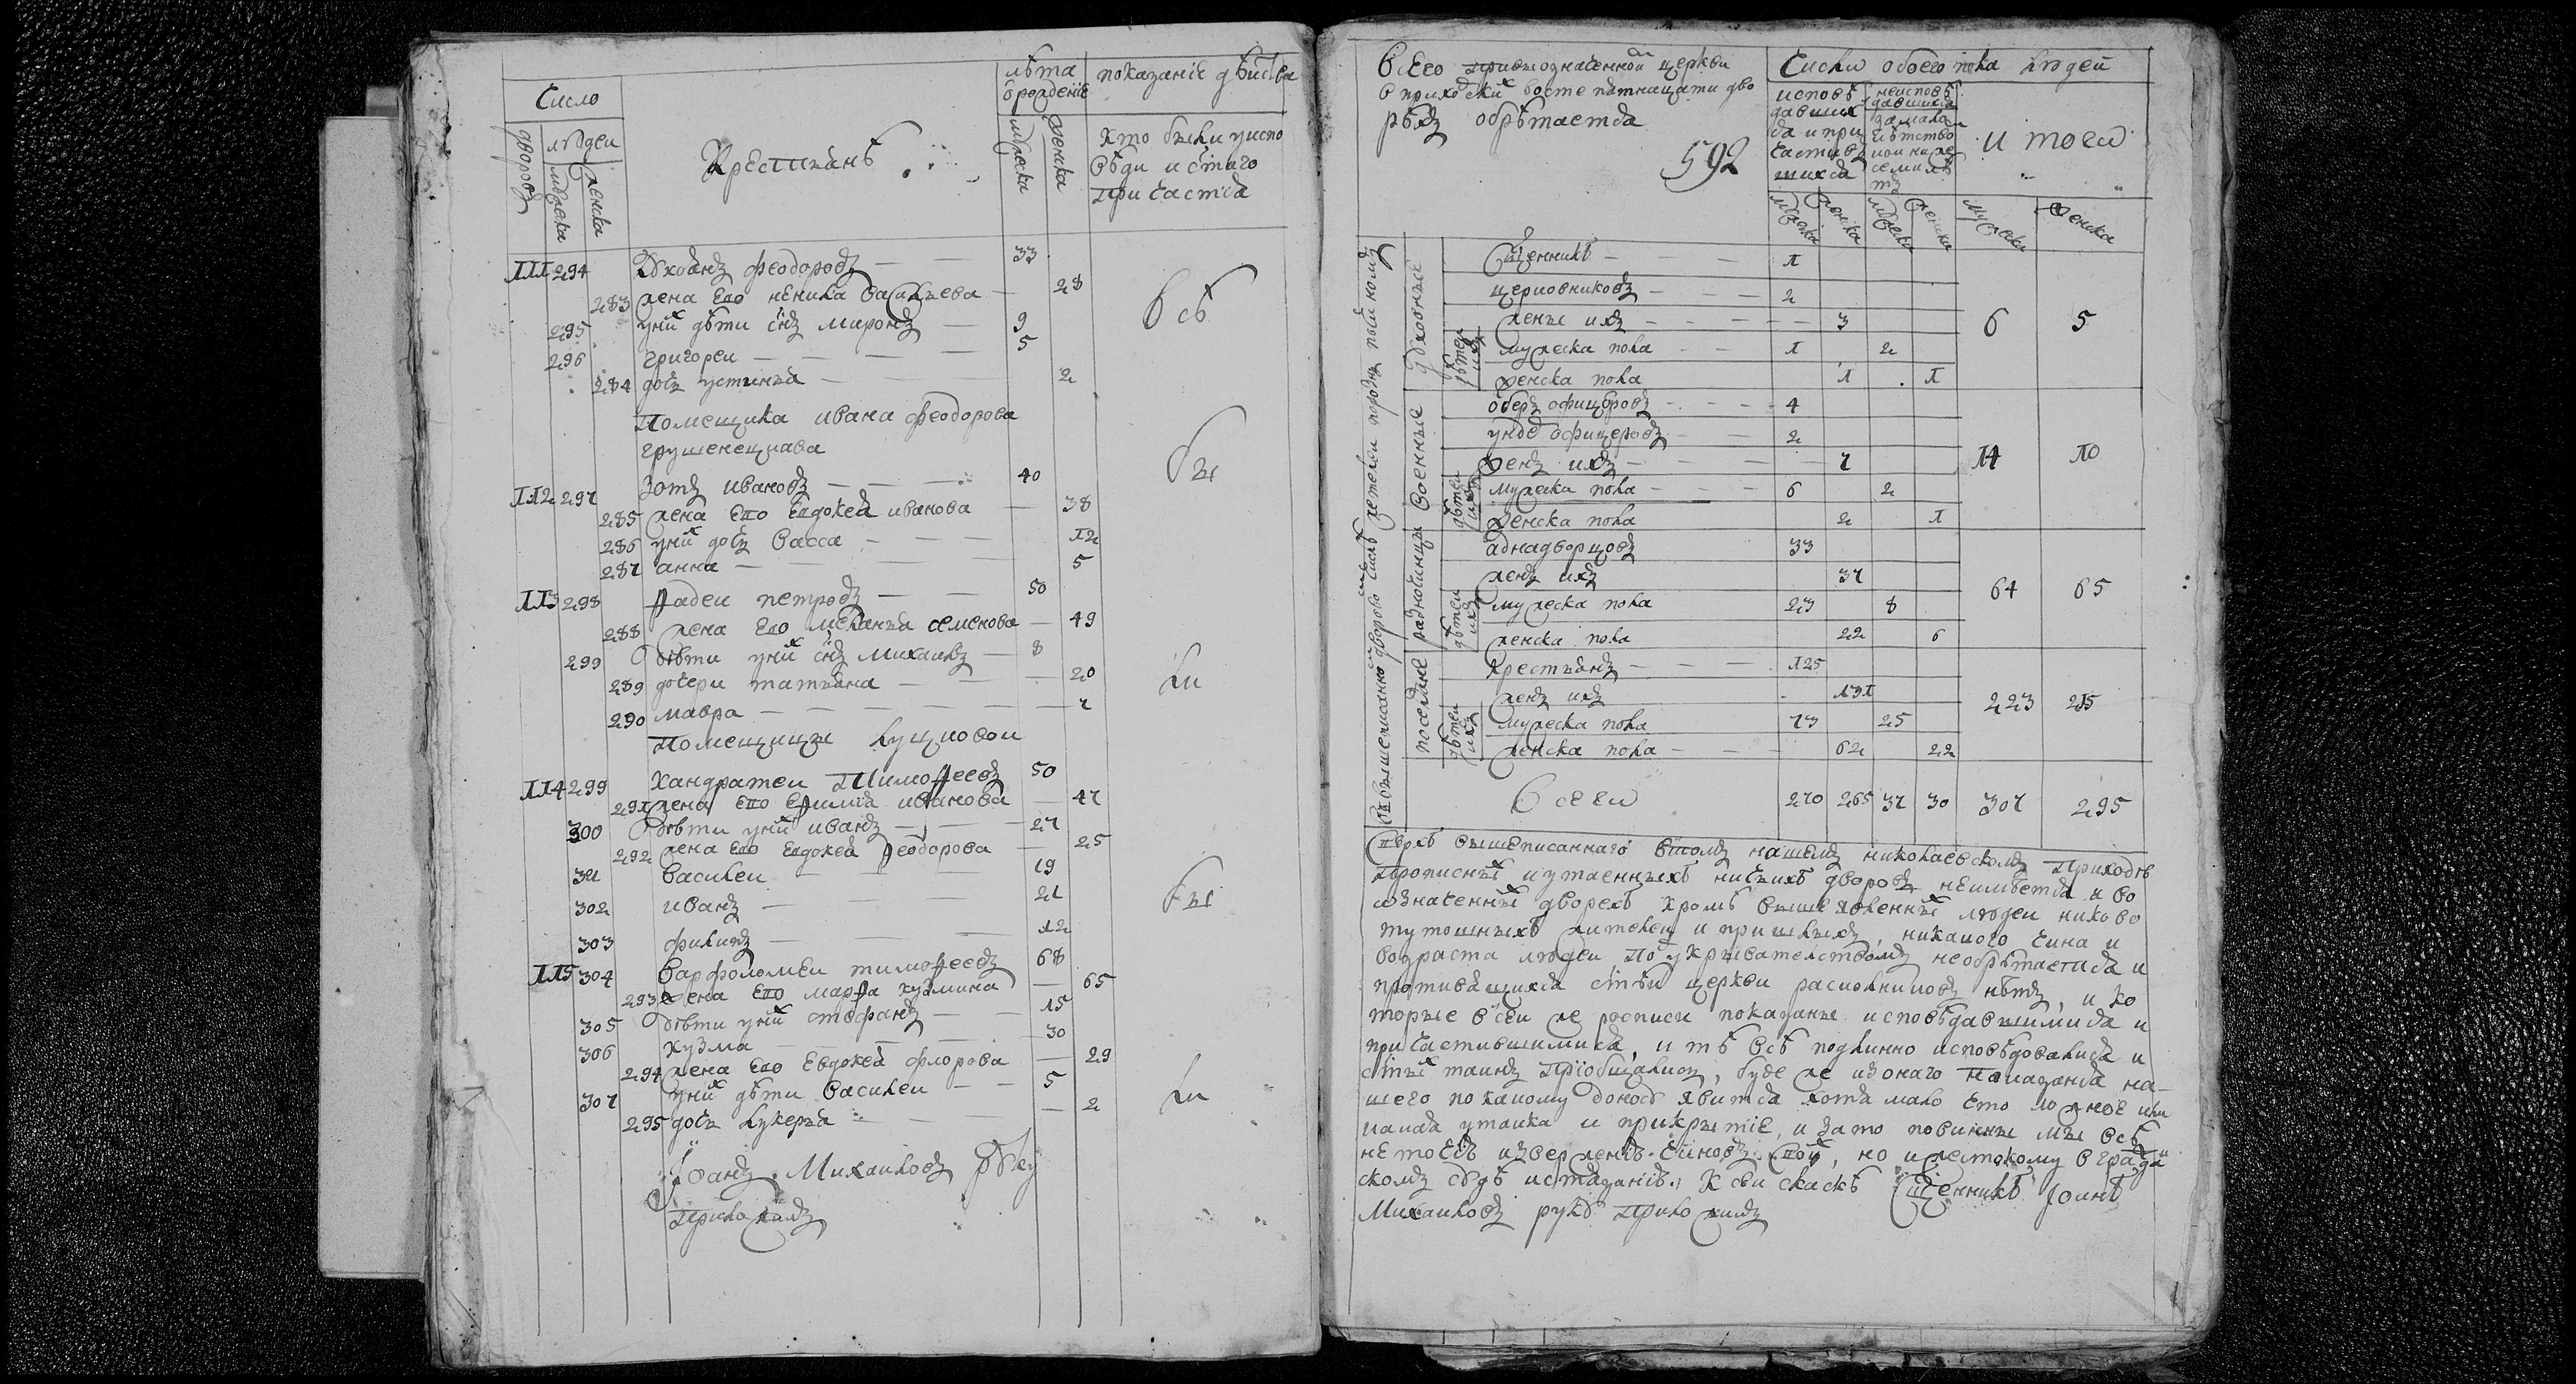 Число
дворовъ
людеи
мужеска
женска
Крестиянъ
лѣта
ѿ рождениѣ
мужеска
женска
показаниѣ дѣиства
кто были у испо
вѣди и с͠таго
причастия
111 294 Ульянъ Феодоровъ 33
283 жена его неѡнила Василъева 28
295 у них дѣти с͠нъ миронъ 9
296 григореи 5
284 дочъ устинъя 2
Помещика ивана Феодорова
грушенецкава
112 297 Зотъ ивановъ 40
285 жена его Евдокея иванова 38
286 у них дочъ Васса 12
287 анна 5
113 298 Фадеи петровъ 50
288 жена его меланъя семенова 49
299 дѣти у них с͠нъ Михаилъ 8
289 дочери татъяна 20
290 мавра 7
Помещицы
114 299 Кандратеи Тимофеевъ 50
291 жена его Ефимия иванова 47
300 дѣти у них иванъ 27
292 жена его Евдокея Феодорова 25
301 Василеи 19
302 иванъ 21
303 филипъ 12
115 304 Варфоломеи тимофеевъ 68
293 жена его марфа кузмина 65
305 дѣти у них стефанъ 15
306 кузма 30
294 жена его Евдокея флорова 29
307 у них дѣти Василеи 5
295 дочъ лукеръя 2
всѣ
бы
ли
бы
ли
Иоаннъ Михаиловъ руку
приложилъ
Всего при вышеозначенной церкви
в приходских во сте пятнацати дво
рѣхъ обрѣтается
592
Числи обоего пола людей
исповѣ
давших
ся и при
частив
шихся
неисповѣ
давшихся
за мало
лѣтство
мои ниже
семи лѣ
тъ
и того
мужеска женска мужеска женска мужеска женска
духовные
Священникъ 1
церковниковъ 2
жены ихъ 3
дѣтеи ихъ
мужеска пола 1 2
женска пола 1 1
6 5
военные
обер офицеровъ 4
унде офицеровъ 2
женъ ихъ 7
дѣтеи ихъ
мужеска пола 6 2
женска пола 2 1
14 10
разночинцы
аднадворцовъ 33
женъ ихъ 37
дѣтеи ихъ
мужеска пола 23 8
женска пола 22 6
64 65
поселяне
крестъянъ 125
женъ ихъ 131
дѣтеи ихъ
мужеска пола 73 25
женска пола 62 22
223 215
Всего 270 265 37 30 307 295
Сверхъ вышеписаннаго в томъ нашемъ николаевскомъ приходѣ
прописных и утаенныхъ ничьихъ дворовъ неимѣется и во
означенных дворехъ кромѣ выше явленных людеи никово
тутошныхъ жителей и пришлыхъ, никакого чина и
возраста людеи под укрывателствомъ необрѣтается и
противящихся с͠тѣи церкви расколниковъ нѣтъ, и ко
торые в сеи же росписи показаны исповѣдавшимися и
причастившимися, и тѣ всѣ подлинно исповѣдовалися и
с͠тых таинъ приобщалисъ, буде же из онаго показания на-
шего по какому доносу явится хотя мало что ложное или
какая утаика и прикрытие, и за то повинны мы всѣ
не точию извержению чиновъ своих, но и жестокому в гражда
скомъ судѣ истязанию. К сеи скаскѣ Священникъ Иоаннъ
Михаиловъ руку приложилъ